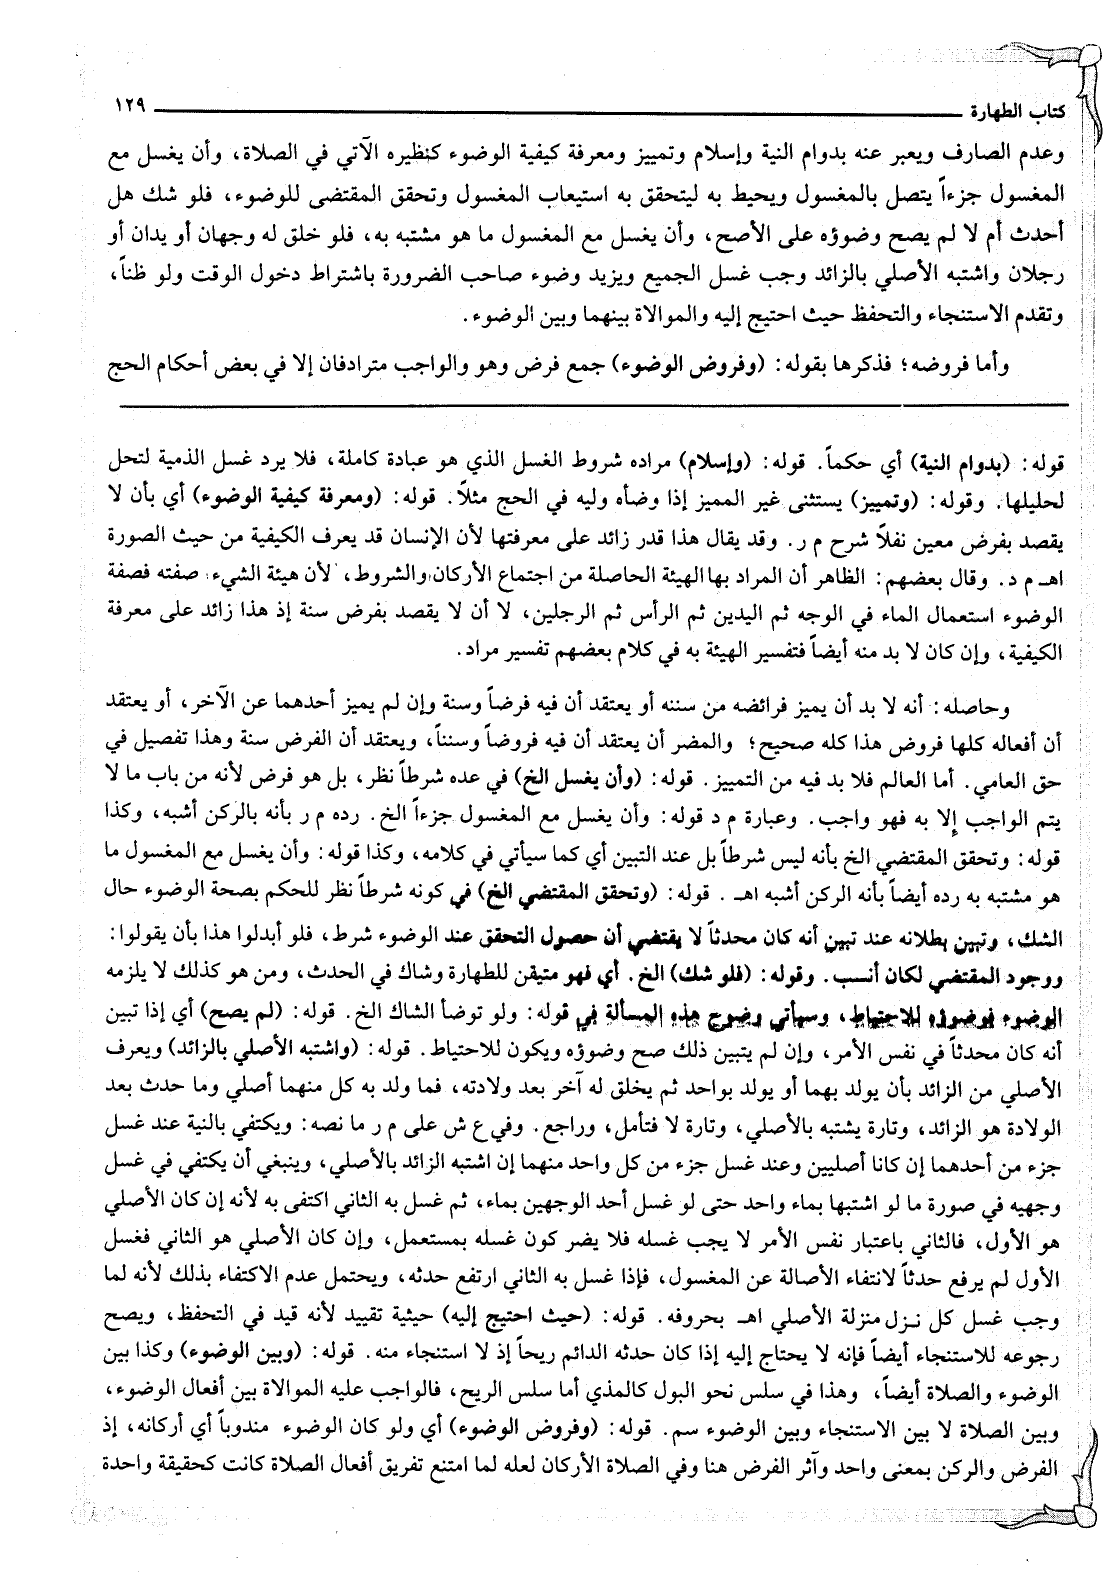 كتاب الطهارة ١٢٩
وعدم الصارف ويعبر عنه بدوام النية وإسلام وتمييز ومعرفة كيفية الوضوء كنظيره الآتي في الصلاة، وأن يغسل مع
المغسول جزءاً يتصل بالمغسول ويحيط به ليتحقق به استيعاب المغسول وتحقق المقتضى للوضوء، فلو شك هل
أحدث أم لا لم يصح وضوؤه على الأصح، وأن يغسل مع المغسول ما هو مشتبه به، فلو خلق له وجهان أو يدان أو
رجلان واشتبه الأصلي بالزائد وجب غسل الجميع ويزيد وضوء صاحب الضرورة باشتراط دخول الوقت ولو ظناً،
وتقدم الاستنجاء والتحفظ حيث احتيج إليه والموالاة بينهما وبين الوضوء.
وأما فروضه؛ فذكرها بقوله: (وفروض الوضوء) جمع فرض وهو والواجب مترادفان إلا في بعض أحكام الحج
قوله: (بدوام النية) أي حكماً. قوله: (وإسلام) مراده شروط الغسل الذي هو عبادة كاملة، فلا يرد غسل الذمية لتحل
لحليلها. وقوله: (وتمييز) يستثنى غير المميز إذا وضأه وليه في الحج مثلاً. قوله: (ومعرفة كيفية الوضوء) أي بأن لا
يقصد بفرض معين نفلاً شرح م ر. وقد يقال هذا قدر زائد على معرفتها لأن الإنسان قد يعرف الكيفية من حيث الصورة
اهـ م د. وقال بعضهم: الظاهر أن المراد بها الهيئة الحاصلة من اجتماع الأركان والشروط، لأن هيئة الشيء صفته فصفة
الوضوء استعمال الماء في الوجه ثم اليدين ثم الرأس ثم الرجلين، لا أن لا يقصد بفرض سنة إذ هذا زائد على معرفة
الكيفية، وإن كان لا بد منه أيضاً فتفسير الهيئة به في كلام بعضهم تفسير مراد.
وحاصله: أنه لا بد أن يميز فرائضه من سننه أو يعتقد أن فيه فرضاً وسنة وإن لم يميز أحدهما عن الآخر، أو يعتقد
أن أفعاله كلها فروض هذا كله صحيح؛ والمضر أن يعتقد أن فيه فروضاً وسنناً، ويعتقد أن الفرض سنة وهذا تفصيل في
حق العامي. أما العالم فلا بد فيه من التمييز. قوله: (وأن يغسل الخ) في عده شرطاً نظر، بل هو فرض لأنه من باب ما لا
يتم الواجب إلا به فهو واجب. وعبارة م د قوله: وأن يغسل مع المغسول جزءاً الخ. رده م ر بأنه بالركن أشبه، وكذا
قوله: وتحقق المقتضي الخ بأنه ليس شرطاً بل عند التبين أي كما سيأتي في كلامه، وكذا قوله: وأن يغسل مع المغسول ما
هو مشتبه به رده أيضاً بأنه الركن أشبه اهـ. قوله: (وتحقق المقتضي الخ) في كونه شرطاً نظر للحكم بصحة الوضوء حال
الشك، وتبين بطلانه عند تبين أنه كان محدثاً لا يقتضي أن حصول التحقق عند الوضوء شرط، فلو أبدلوا هذا بأن يقولوا:
ووجود المقتضي لكان أنسب. وقوله: (فلو شك) الخ. أي فهو متيقن للطهارة وشاك في الحدث، ومن هو كذلك لا يلزمه
الوضوء فوضوؤه للاحتياط، وسيأتي وضوح هذه المسألة في قوله: ولو توضأ الشاك الخ. قوله: (لم يصح) أي إذا تبين
أنه كان محدثاً في نفس الأمر، وإن لم يتبين ذلك صح وضوؤه ويكون للاحتياط. قوله: (واشتبه الأصلي بالزائد) ويعرف
الأصلي من الزائد بأن يولد بهما أو يولد بواحد ثم يخلق له آخر بعد ولادته، فما ولد به كل منهما أصلي وما حدث بعد
الولادة هو الزائد، وتارة يشتبه بالأصلي، وتارة لا فتأمل، وراجع. وفي ع ش على م ر ما نصه: ويكتفي بالنية عند غسل
جزء من أحدهما إن كانا أصليين وعند غسل جزء من كل واحد منهما إن اشتبه الزائد بالأصلي، وينبغي أن يكتفي في غسل
وجهيه في صورة ما لو اشتبها بماء واحد حتى لو غسل أحد الوجهين بماء، ثم غسل به الثاني اكتفى به لأنه إن كان الأصلي
هو الأول، فالثاني باعتبار نفس الأمر لا يجب غسله فلا يضر كون غسله بمستعمل، وإن كان الأصلي هو الثاني فغسل
الأول لم يرفع حدثاً لانتفاء الأصالة عن المغسول، فإذا غسل به الثاني ارتفع حدثه، ويحتمل عدم الاكتفاء بذلك لأنه لما
وجب غسل كل نـزل منزلة الأصلي اهـ بحروفه. قوله: (حيث احتيج إليه) حيثية تقييد لأنه قيد في التحفظ، ويصح
رجوعه للاستنجاء أيضاً فإنه لا يحتاج إليه إذا كان حدثه الدائم ريحاً إذ لا استنجاء منه. قوله: (وبين الوضوء) وكذا بين
الوضوء والصلاة أيضاً، وهذا في سلس نحو البول كالمذي أما سلس الريح، فالواجب عليه الموالاة بين أفعال الوضوء،
وبين الصلاة لا بين الاستنجاء وبين الوضوء سم. قوله: (وفروض الوضوء) أي ولو كان الوضوء مندوباً أي أركانه، إذ
الفرض والركن بمعنى واحد وآثر الفرض هنا وفي الصلاة الأركان لعله لما امتنع تفريق أفعال الصلاة كانت كحقيقة واحدة